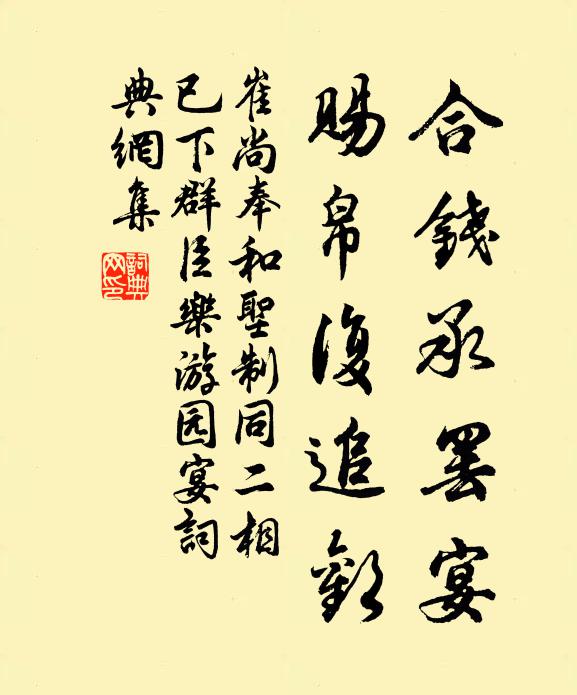 合錢承罢宴
賜帛復追歡
崔尚奉和聖制同二相
已下群臣樂游园宴詞
典網集
詞典网印